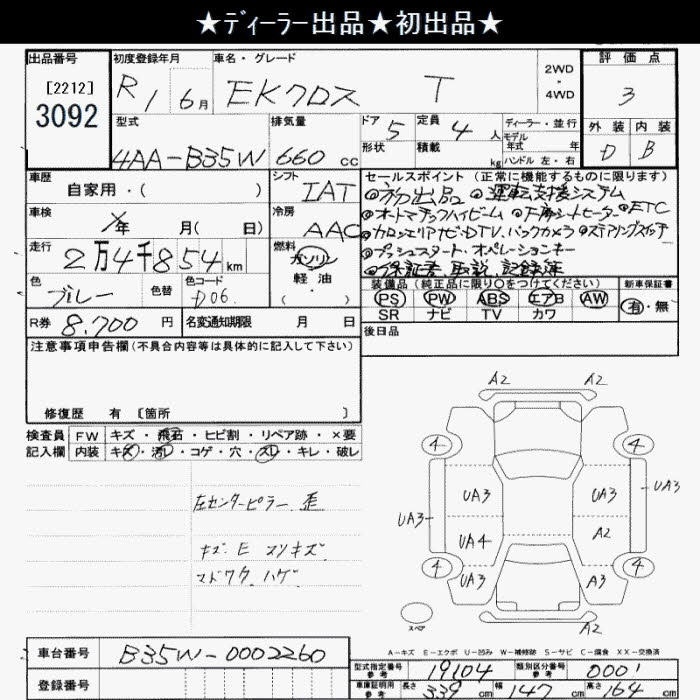 ★ディーラー出品★初出品★
出品番号 初度登録年月 車名・グレード 評価点
[2212] 3092 R1 6月 EKクロス T 2WD・4WD 3
型式 排気量 ドア 5 定員 4人 ディーラー・並行 外装 内装
4AA-B35W 660cc 形状 積載 kg モデル年式 年 ハンドル 左・右 D B
車歴 シフト セールスポイント(正常に機能するものに限ります)
自家用・( ) IAT ◎初出品 ◎運転支援システム
車検 年 月( 日) 冷房 AAC ◎オートマチックハイビーム ◎下席シートヒーター ◎ETC
走行 燃料 ◎カロッツェリアナビ・DTV.バックカメラ ◎ステアリングスイッチ
2万4千854km ガソリン 軽油 ・( ) ◎プッシュスタート・オペレーションキー
◎保証書 取説 記録簿
色 色替 色コード 装備品(純正品に限り○をつけてください) 新車保証書
ブルー D06 PS PW ABS エアB AW 有・無
R券 8,700円 名変通知期限 月 日 SR ナビ TV カワ
注意事項申告欄(不具合内容等は具体的に記入して下さい) 後日品
修復歴 有 [箇所 ]
検査員 FW キズ・飛石・ヒビ割・リペア跡・×要
記入欄 内装 キズ・汚レ・コゲ・穴・スレ・キレ・破レ
左センターピラー歪
キズ.E スリキズ
マドワク.ハゲ
A2 A2
4 4
UA3 UA3 UA3
UA3 UA4 A2
4 4
UA3 A3
スペア A2
A-キズ E-エクボ U-凹み W-補修跡 S-サビ C-腐食 XX-交換済
車台番号 B35W-0002260
型式指定番号 参考 19104 類別区分番号 参考 0001
登録番号 車庫証明用 参考 長さ 339cm 幅 147cm 高さ 164cm